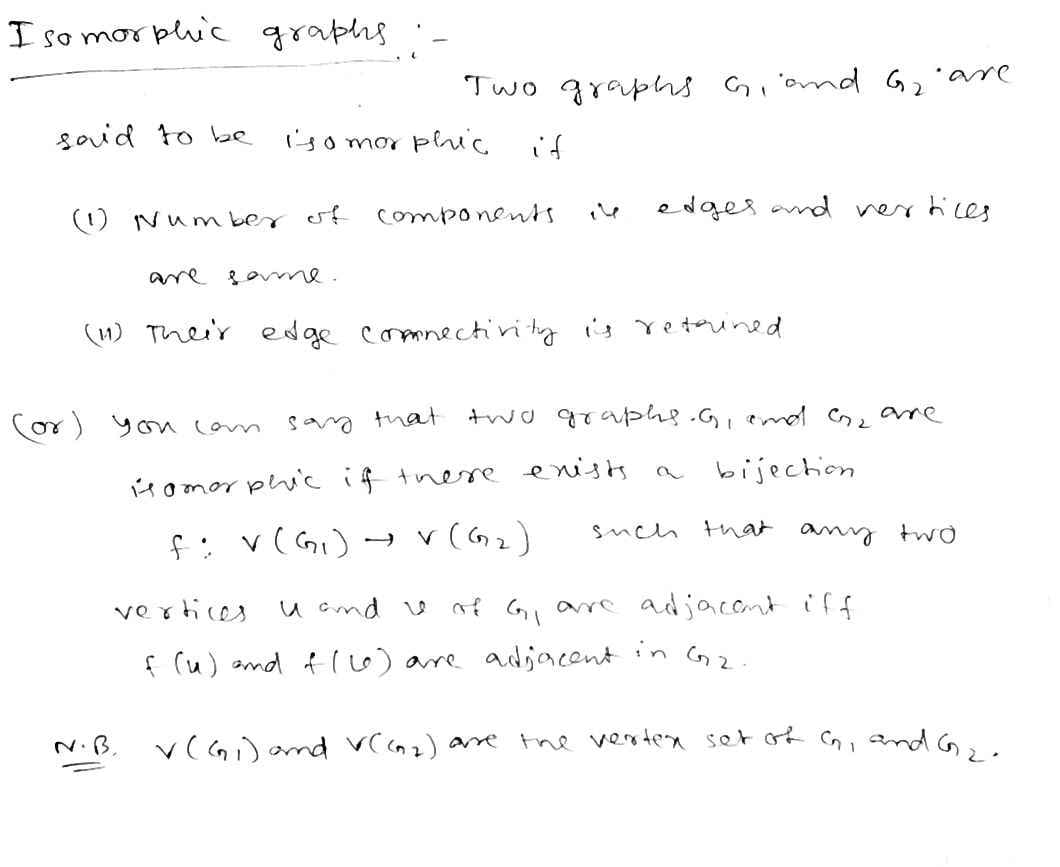 Isomorphic graphs :-
Two graphs G₁ and G₂ are
said to be isomorphic if
(I) Number of components ie edges and vertices
are same.
(II) Their edge connectivity is retained
(or) you can say that two graphs G₁ and G₂ are
isomorphic if there exists a bijection
f: V(G₁) → V(G₂) such that any two
vertices u and v of G₁ are adjacent iff
f(u) and f(v) are adjacent in G₂.
N.B. V(G₁) and V(G₂) are the vertex set of G₁ and G₂.